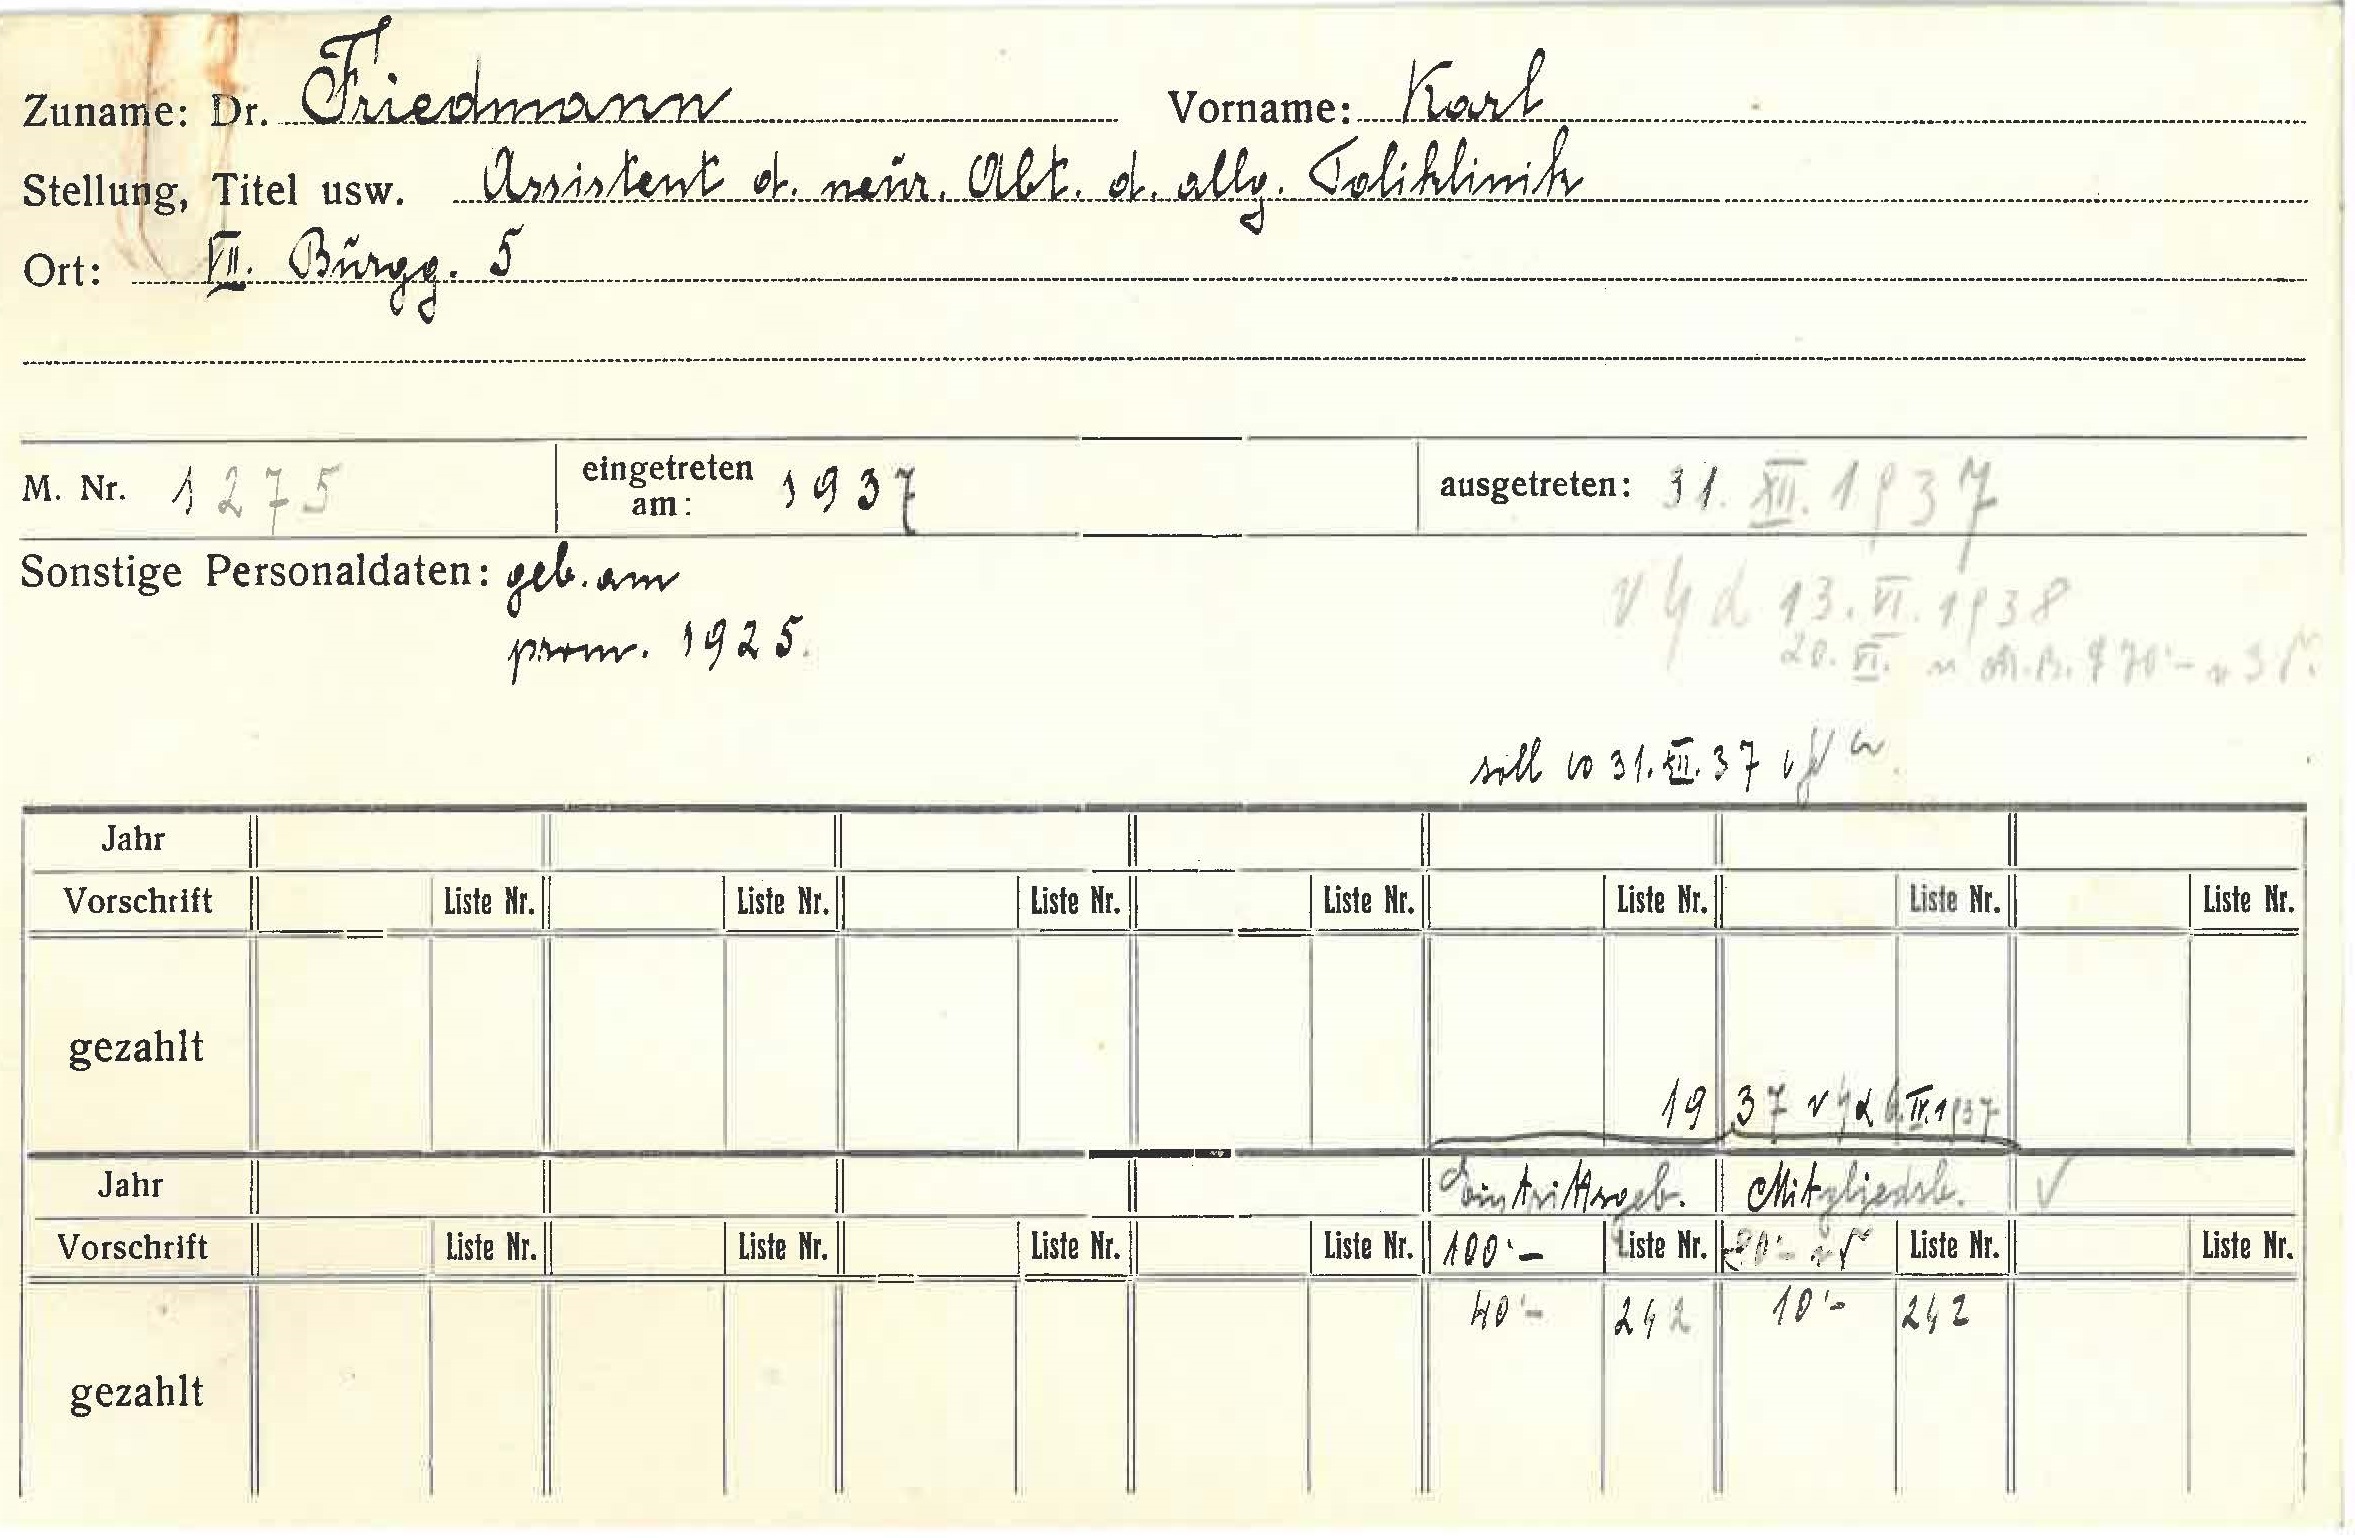 Zuname: Dr. Friedmann Vorname: Karl
Stellung, Titel usw. Assistent d. neur. Abt. d. allg. Poliklinik
Ort: VII. Burgg. 5
M. Nr. 1275 eingetreten am: 1937 ausgetreten: 31. XII. 1937
Sonstige Personaldaten: geb. am
13. VI. 1938
prom. 1925.
20. VI.
soll 31. XII. 37
Jahr
Vorschrift Liste Nr. Liste Nr. Liste Nr. Liste Nr. Liste Nr. Liste Nr. Liste Nr.
gezahlt
1937 IV. 1937
Jahr Eintrittsgeb. Mitgliedsb. ✓
Vorschrift Liste Nr. Liste Nr. Liste Nr. Liste Nr. 100·– Liste Nr. Liste Nr. Liste Nr.
gezahlt 40·– 242 10·– 242